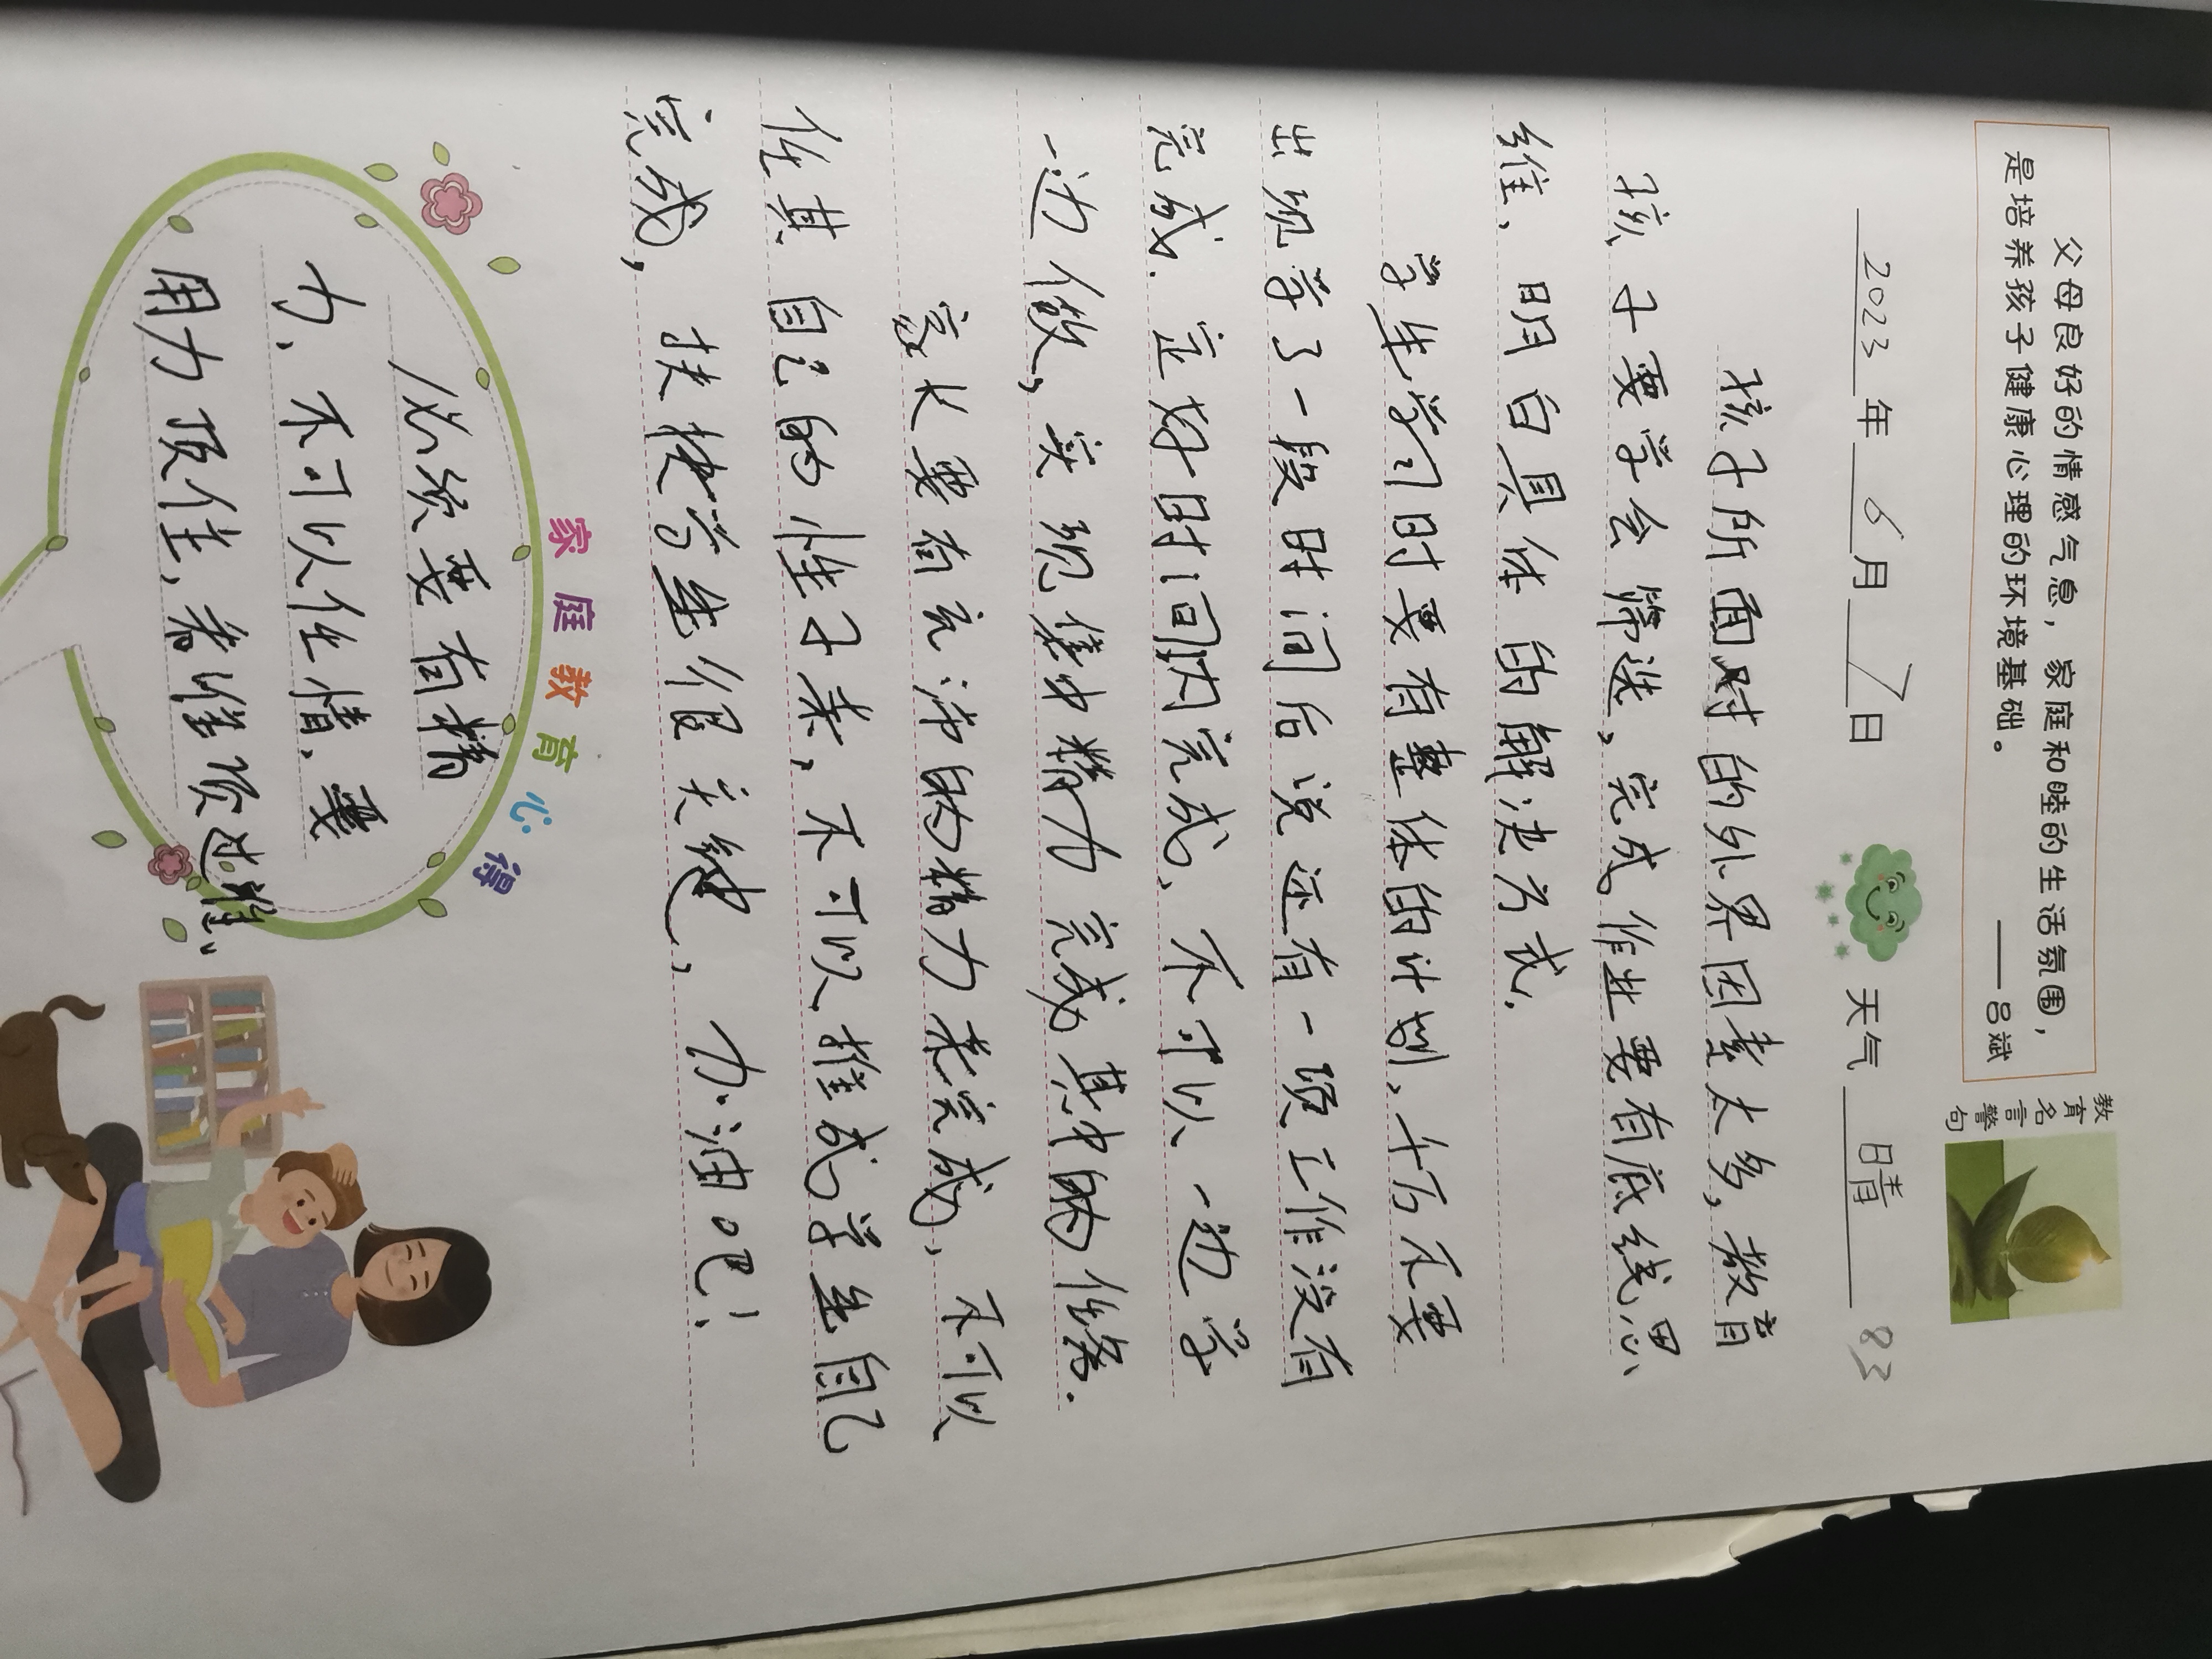 教育名言警句
父母良好的情感气息，家庭和睦的生活氛围，
是培养孩子健康心理的环境基础。
——吕斌
2023年6月7日 天气 晴 83
孩子所面对的外界因素太多，教育
孩子要学会筛选，完成作业要有底线思
维、明白具体的解决方式.
学生学习时要有整体的计划，千万不要
出现学了一段时间后说还有一项工作没有
完成.定好时间内完成、不可以一边学
一边做，实现集中精力完成其中的任务.
家长要有充沛的精力来完成，不可以
任其自己的性子来，不可以推或学生自己
完成，扶持学生很关键，加油吧！
家庭教育心得
必须要有精
力、不可以任性情、要
用力顶住、看准项过